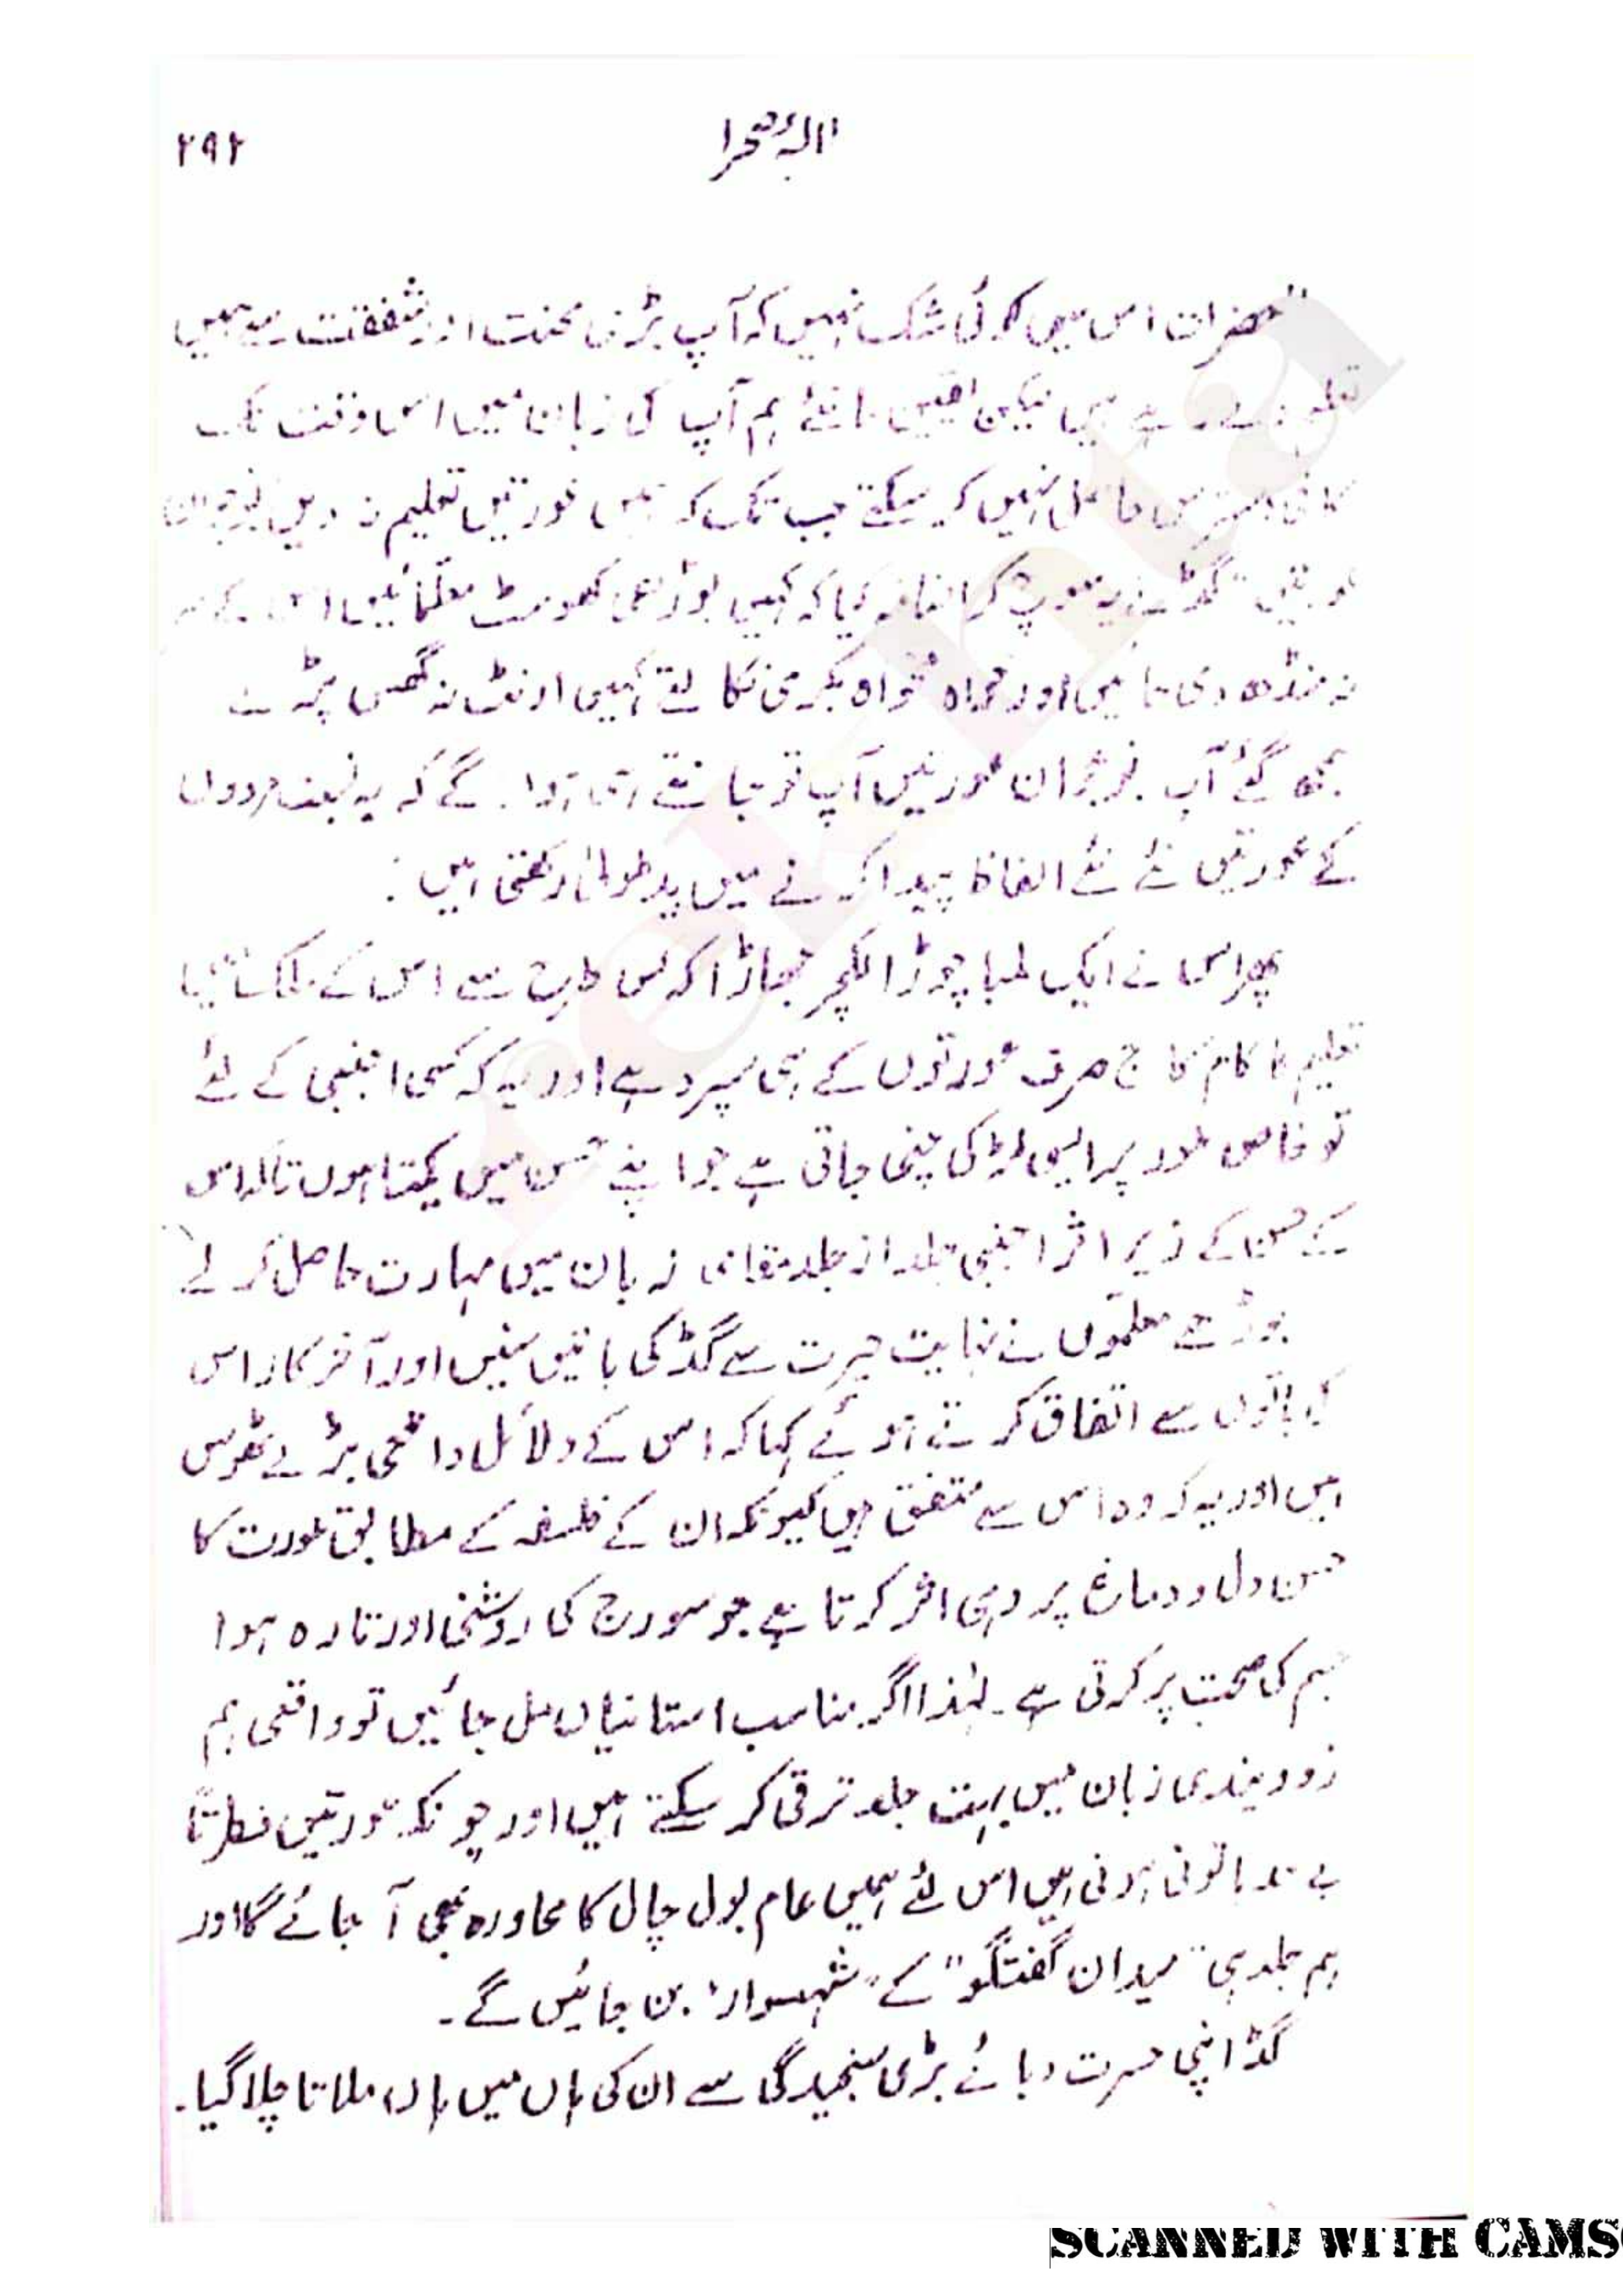 الہ صحرا ۲۹۲
"حضرات اس میں کوئی شک نہیں کہ آپ بڑی محنت اور شفقت سے ہمیں
تعلیم دے رہے ہیں لیکن یقین مانئے ہم آپ کی زبان میں اس وقت تک
کافی دسترس حاصل نہیں کر سکتے جب تک کہ ہمیں عورتیں تعلیم نہ دیں نوجوان
عورتیں" گڈ نے یہ سوچ کر اضافہ کیا کہ کہیں بوڑھی کھوسٹ معلمائیں اس کے سر
نہ منڈھ دی جائیں اور خواہ مخواہ بکری نکالتے کہیں اونٹ نہ گھس پڑے
سمجھ گئے آپ نوجوان عورتیں آپ تو جانتے ہی ہوں گے کہ بہ نسبت مردوں
کے عورتیں نئے نئے الفاظ پیدا کرنے میں ید طولیٰ رکھتی ہیں :
پھر اس نے ایک لمبا چوڑا لکچر جھاڑا کہ کس طرح سے اس کے ملک میں
تعلیم کا کام کاج صرف عورتوں کے ہی سپرد ہے اور یہ کہ کسی اجنبی کے لئے
تو خاص طور پر ایسی لڑکی چنی جاتی ہے جو اپنے حسن میں یکتا ہوں تاکہ اس
کے حسن کے زیر اثر اجنبی جلد از جلد مقامی زبان میں مہارت حاصل کر لے
بوڑھے معلموں نے نہایت حیرت سے گڈ کی باتیں سنیں اور آخر کار اس
کی باتوں سے اتفاق کرتے ہوئے کہا کہ اس کے دلائل واقعی بڑے ٹھوس
ہیں اور یہ کہ وہ اس سے متفق ہیں کیونکہ ان کے فلسفہ کے مطابق عورت کا
حسن دل و دماغ پر وہی اثر کرتا ہے جو سورج کی روشنی اور تازہ ہوا
جسم کی صحت پر کرتی ہے۔ لہٰذا اگر مناسب استانیاں مل جائیں تو واقعی ہم
زوویندی زبان میں بہت جلد ترقی کر سکتے ہیں اور چونکہ عورتیں فطرتاً
بے حد باتونی ہوتی ہیں اس لئے ہمیں عام بول چال کا محاورہ بھی آ جائے گا اور
ہم جلد ہی "میدان گفتگو" کے "شہسوار" بن جائیں گے۔
گڈ اپنی مسرت دبائے بڑی سنجیدگی سے ان کی ہاں میں ہاں ملاتا چلا گیا۔
rekhta
SCANNED WITH CAMS